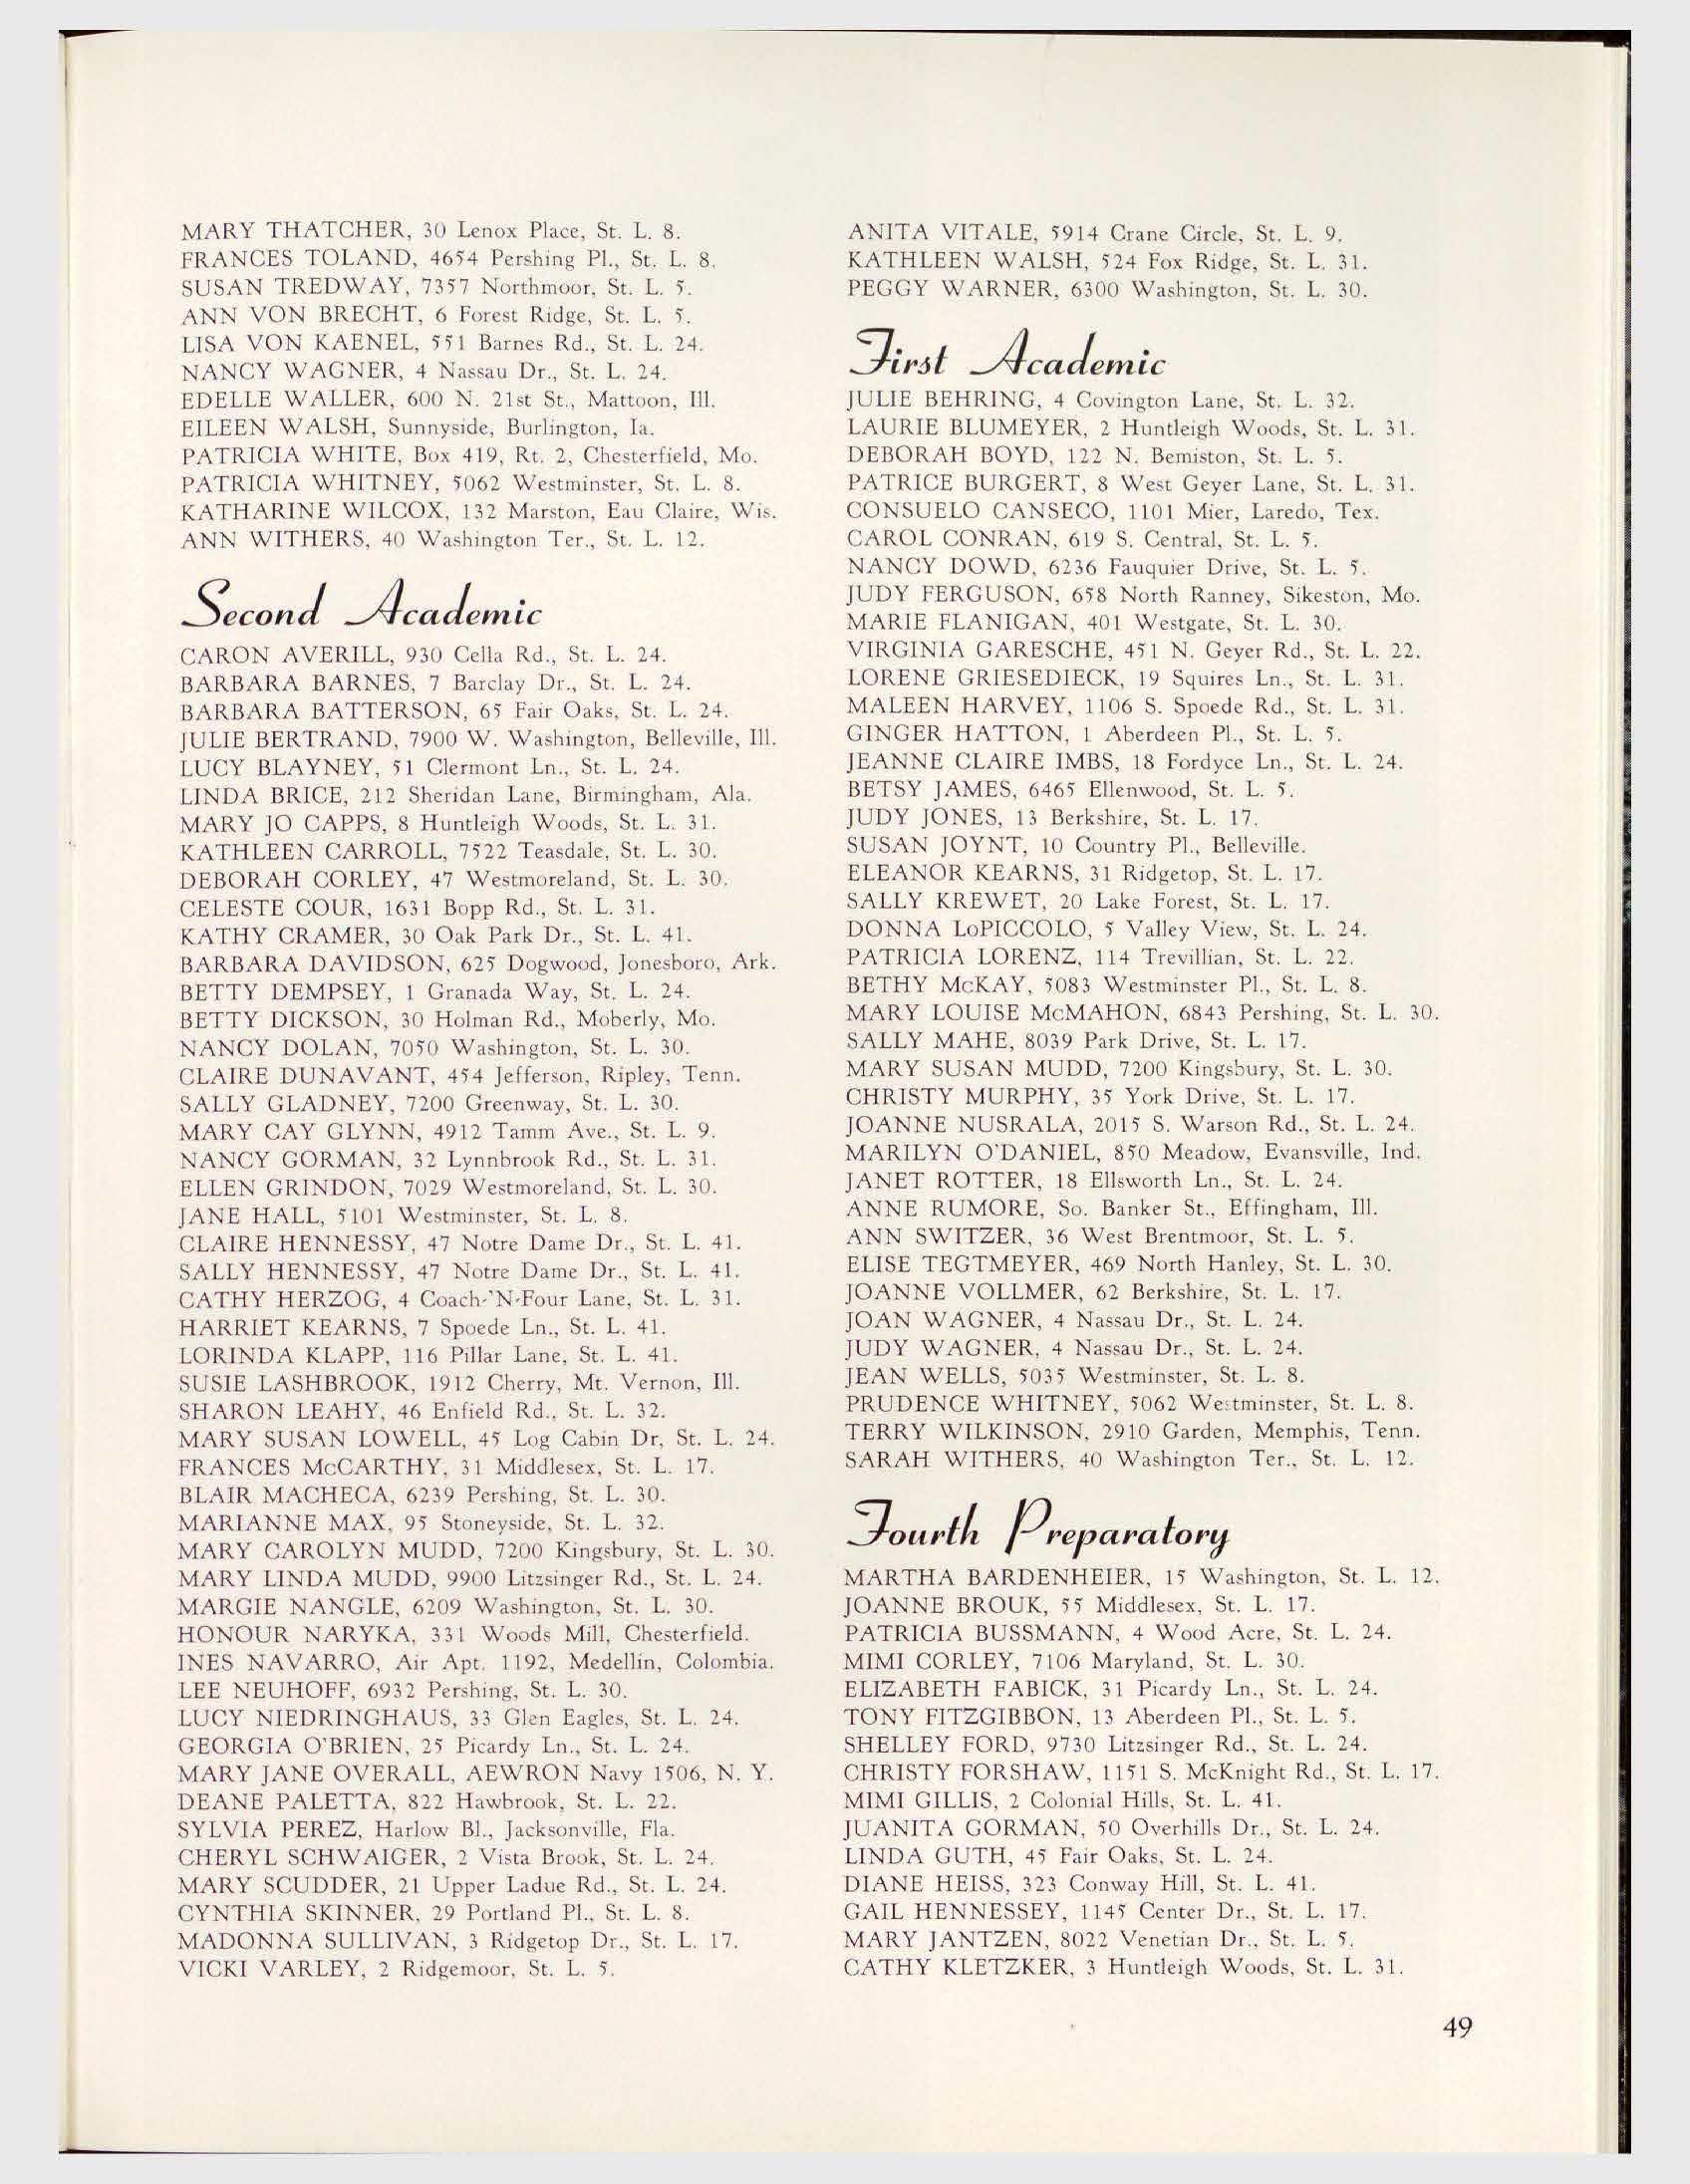 MARY THATCHER, 30 Lenox Place, St. L. 8.
FRANCES TOLAND, 4654 Pershing Pl., St. L. 8.
SUSAN TREDWAY, 7357 Northmoor, St. L. 5.
ANN VON BRECHT, 6 Forest Ridge, St. L. 5.
LISA VON KAENEL, 551 Barnes Rd., St. L. 24.
NANCY WAGNER, 4 Nassau Dr., St. L. 24.
EDELLE WALLER, 600 N. 21st St., Mattoon, Ill.
EILEEN WALSH, Sunnyside, Burlington, Ia.
PATRICIA WHITE, Box 419, Rt. 2, Chesterfield, Mo.
PATRICIA WHITNEY, 5062 Westminster, St. L. 8.
KATHARINE WILCOX, 132 Marston, Eau Claire, Wis.
ANN WITHERS, 40 Washington Ter., St. L. 12.
Second Academic
CARON AVERILL, 930 Cella Rd., St. L. 24.
BARBARA BARNES, 7 Barclay Dr., St. L. 24.
BARBARA BATTERSON, 65 Fair Oaks, St. L. 24.
JULIE BERTRAND, 7900 W. Washington, Belleville, Ill.
LUCY BLAYNEY, 51 Clermont Ln., St. L. 24.
LINDA BRICE, 212 Sheridan Lane, Birmingham, Ala.
MARY JO CAPPS, 8 Huntleigh Woods, St. L. 31.
KATHLEEN CARROLL, 7522 Teasdale, St. L. 30.
DEBORAH CORLEY, 47 Westmoreland, St. L. 30.
CELESTE COUR, 1631 Bopp Rd., St. L. 31.
KATHY CRAMER, 30 Oak Park Dr., St. L. 41.
BARBARA DAVIDSON, 625 Dogwood, Jonesboro, Ark.
BETTY DEMPSEY, 1 Granada Way, St. L. 24.
BETTY DICKSON, 30 Holman Rd., Moberly, Mo.
NANCY DOLAN, 7050 Washington, St. L. 30.
CLAIRE DUNAVANT, 454 Jefferson, Ripley, Tenn.
SALLY GLADNEY, 7200 Greenway, St. L. 30.
MARY CAY GLYNN, 4912 Tamm Ave., St. L. 9.
NANCY GORMAN, 32 Lynnbrook Rd., St. L. 31.
ELLEN GRINDON, 7029 Westmoreland, St. L. 30.
JANE HALL, 5101 Westminster, St. L. 8.
CLAIRE HENNESSY, 47 Notre Dame Dr., St. L. 41.
SALLY HENNESSY, 47 Notre Dame Dr., St. L. 41.
CATHY HERZOG, 4 Coach-'N-Four Lane, St. L. 31.
HARRIET KEARNS, 7 Spoede Ln., St. L. 41.
LORINDA KLAPP, 116 Pillar Lane, St. L. 41.
SUSIE LASHBROOK, 1912 Cherry, Mt. Vernon, Ill.
SHARON LEAHY, 46 Enfield Rd., St. L. 32.
MARY SUSAN LOWELL, 45 Log Cabin Dr, St. L. 24.
FRANCES McCARTHY, 31 Middlesex, St. L. 17.
BLAIR MACHECA, 6239 Pershing, St. L. 30.
MARIANNE MAX, 95 Stoneyside, St. L. 32.
MARY CAROLYN MUDD, 7200 Kingsbury, St. L. 30.
MARY LINDA MUDD, 9900 Litzsinger Rd., St. L. 24.
MARGIE NANGLE, 6209 Washington, St. L. 30.
HONOUR NARYKA, 331 Woods Mill, Chesterfield.
INES NAVARRO, Air Apt. 1192, Medellin, Colombia.
LEE NEUHOFF, 6932 Pershing, St. L. 30.
LUCY NIEDRINGHAUS, 33 Glen Eagles, St. L. 24.
GEORGIA O'BRIEN, 25 Picardy Ln., St. L. 24.
MARY JANE OVERALL, AEWRON Navy 1506, N. Y.
DEANE PALETTA, 822 Hawbrook, St. L. 22.
SYLVIA PEREZ, Harlow Bl., Jacksonville, Fla.
CHERYL SCHWAIGER, 2 Vista Brook, St. L. 24.
MARY SCUDDER, 21 Upper Ladue Rd., St. L. 24.
CYNTHIA SKINNER, 29 Portland Pl., St. L. 8.
MADONNA SULLIVAN, 3 Ridgetop Dr., St. L. 17.
VICKI VARLEY, 2 Ridgemoor, St. L. 5.
ANITA VITALE, 5914 Crane Circle, St. L. 9.
KATHLEEN WALSH, 524 Fox Ridge, St. L. 31.
PEGGY WARNER, 6300 Washington, St. L. 30.
First Academic
JULIE BEHRING, 4 Covington Lane, St. L. 32.
LAURIE BLUMEYER, 2 Huntleigh Woods, St. L. 31.
DEBORAH BOYD, 122 N. Bemiston, St. L. 5.
PATRICE BURGERT, 8 West Geyer Lane, St. L. 31.
CONSUELO CANSECO, 1101 Mier, Laredo, Tex.
CAROL CONRAN, 619 S. Central, St. L. 5.
NANCY DOWD, 6236 Fauquier Drive, St. L. 5.
JUDY FERGUSON, 658 North Ranney, Sikeston, Mo.
MARIE FLANIGAN, 401 Westgate, St. L. 30.
VIRGINIA GARESCHE, 451 N. Geyer Rd., St. L. 22.
LORENE GRIESEDIECK, 19 Squires Ln., St. L. 31.
MALEEN HARVEY, 1106 S. Spoede Rd., St. L. 31.
GINGER HATTON, 1 Aberdeen Pl., St. L. 5.
JEANNE CLAIRE IMBS, 18 Fordyce Ln., St. L. 24.
BETSY JAMES, 6465 Ellenwood, St. L. 5.
JUDY JONES, 13 Berkshire, St. L. 17.
SUSAN JOYNT, 10 Country Pl., Belleville.
ELEANOR KEARNS, 31 Ridgetop, St. L. 17.
SALLY KREWET, 20 Lake Forest, St. L. 17.
DONNA LoPICCOLO, 5 Valley View, St. L. 24.
PATRICIA LORENZ, 114 Trevillian, St. L. 22.
BETHY McKAY, 5083 Westminster Pl., St. L. 8.
MARY LOUISE McMAHON, 6843 Pershing, St. L. 30.
SALLY MAHE, 8039 Park Drive, St. L. 17.
MARY SUSAN MUDD, 7200 Kingsbury, St. L. 30.
CHRISTY MURPHY, 35 York Drive, St. L. 17.
JOANNE NUSRALA, 2015 S. Warson Rd., St. L. 24.
MARILYN O'DANIEL, 850 Meadow, Evansville, Ind.
JANET ROTTER, 18 Ellsworth Ln., St. L. 24.
ANNE RUMORE, So. Banker St., Effingham, Ill.
ANN SWITZER, 36 West Brentmoor, St. L. 5.
ELISE TEGTMEYER, 469 North Hanley, St. L. 30.
JOANNE VOLLMER, 62 Berkshire, St. L. 17.
JOAN WAGNER, 4 Nassau Dr., St. L. 24.
JUDY WAGNER, 4 Nassau Dr., St. L. 24.
JEAN WELLS, 5035 Westminster, St. L. 8.
PRUDENCE WHITNEY, 5062 Westminster, St. L. 8.
TERRY WILKINSON, 2910 Garden, Memphis, Tenn.
SARAH WITHERS, 40 Washington Ter., St. L. 12.
Fourth Preparatory
MARTHA BARDENHEIER, 15 Washington, St. L. 12.
JOANNE BROUK, 55 Middlesex, St. L. 17.
PATRICIA BUSSMANN, 4 Wood Acre, St. L. 24.
MIMI CORLEY, 7106 Maryland, St. L. 30.
ELIZABETH FABICK, 31 Picardy Ln., St. L. 24.
TONY FITZGIBBON, 13 Aberdeen Pl., St. L. 5.
SHELLEY FORD, 9730 Litzsinger Rd., St. L. 24.
CHRISTY FORSHAW, 1151 S. McKnight Rd., St. L. 17.
MIMI GILLIS, 2 Colonial Hills, St. L. 41.
JUANITA GORMAN, 50 Overhills Dr., St. L. 24.
LINDA GUTH, 45 Fair Oaks, St. L. 24.
DIANE HEISS, 323 Conway Hill, St. L. 41.
GAIL HENNESSEY, 1145 Center Dr., St. L. 17.
MARY JANTZEN, 8022 Venetian Dr., St. L. 5.
CATHY KLETZKER, 3 Huntleigh Woods, St. L. 31.
49